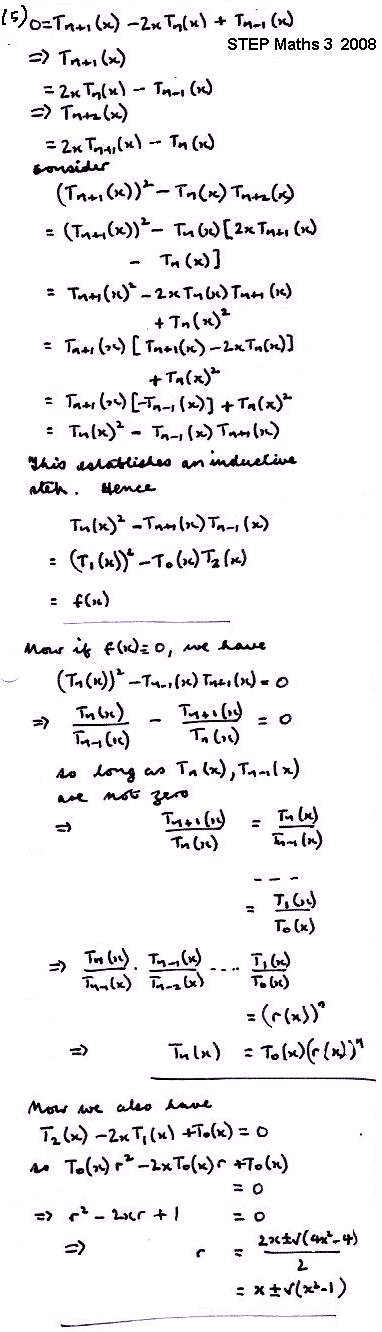 (5) 0=Tₙ₊₁(x) - 2xTₙ(x) + Tₙ₋₁(x)
STEP Maths 3 2008
=> Tₙ₊₁(x)
= 2xTₙ(x) - Tₙ₋₁(x)
=> Tₙ₊₂(x)
= 2xTₙ₊₁(x) - Tₙ(x)
consider
(Tₙ₊₁(x))² - Tₙ(x)Tₙ₊₂(x)
= (Tₙ₊₁(x))² - Tₙ(x)[2xTₙ₊₁(x)
- Tₙ(x)]
= Tₙ₊₁(x)² - 2xTₙ(x)Tₙ₊₁(x)
+ Tₙ(x)²
= Tₙ₊₁(x)[Tₙ₊₁(x) - 2xTₙ(x)]
+ Tₙ(x)²
= Tₙ₊₁(x)[-Tₙ₋₁(x)] + Tₙ(x)²
= Tₙ(x)² - Tₙ₋₁(x)Tₙ₊₁(x)
This establishes an inductive
step. Hence
Tₙ(x)² - Tₙ₊₁(x)Tₙ₋₁(x)
= (T₁(x))² - T₀(x)T₂(x)
= f(x)
Now if f(x)≡0, we have
(Tₙ(x))² - Tₙ₋₁(x)Tₙ₊₁(x) = 0
=> Tₙ(x)/Tₙ₋₁(x) - Tₙ₊₁(x)/Tₙ(x) = 0
so long as Tₙ(x), Tₙ₋₁(x)
are not zero
=> Tₙ₊₁(x)/Tₙ(x) = Tₙ(x)/Tₙ₋₁(x)
- - -
= T₁(x)/T₀(x)
=> Tₙ(x)/Tₙ₋₁(x) . Tₙ₋₁(x)/Tₙ₋₂(x) .... T₁(x)/T₀(x)
= (r(x))ⁿ
=> Tₙ(x) = T₀(x)(r(x))ⁿ
Now we also have
T₂(x) - 2xT₁(x) + T₀(x) = 0
so T₀(x)r² - 2xT₀(x)r + T₀(x)
= 0
=> r² - 2xr + 1 = 0
=> r = 2x±√(4x²-4)/2
= x±√(x²-1)